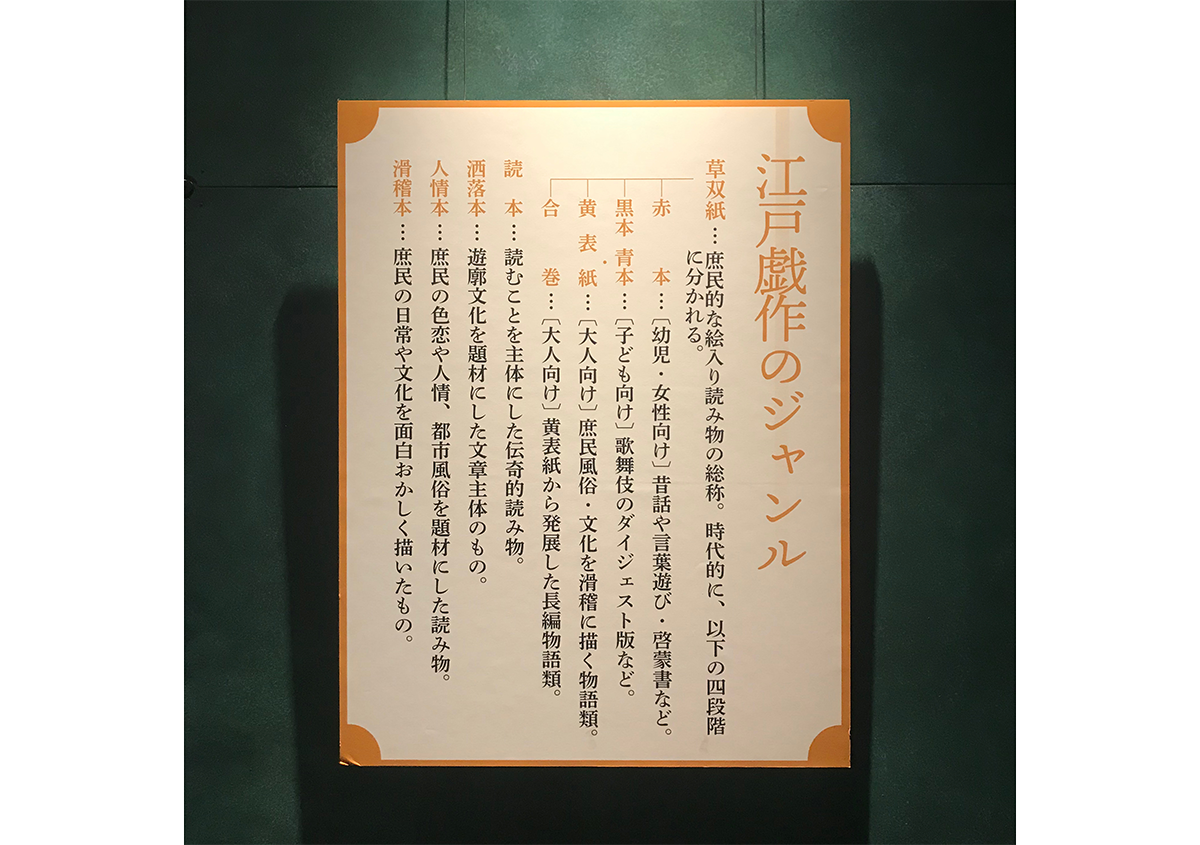 江戸戯作のジャンル
草双紙…庶民的な絵入り読み物の総称。時代的に、以下の四段階
に分かれる。
赤本…〔幼児・女性向け〕昔話や言葉遊び・啓蒙書など。
黒本・青本…〔子ども向け〕歌舞伎のダイジェスト版など。
黄表紙…〔大人向け〕庶民風俗・文化を滑稽に描く物語類。
合巻…〔大人向け〕黄表紙から発展した長編物語類。
読本…読むことを主体にした伝奇的読み物。
洒落本…遊廓文化を題材にした文章主体のもの。
人情本…庶民の色恋や人情、都市風俗を題材にした読み物。
滑稽本…庶民の日常や文化を面白おかしく描いたもの。